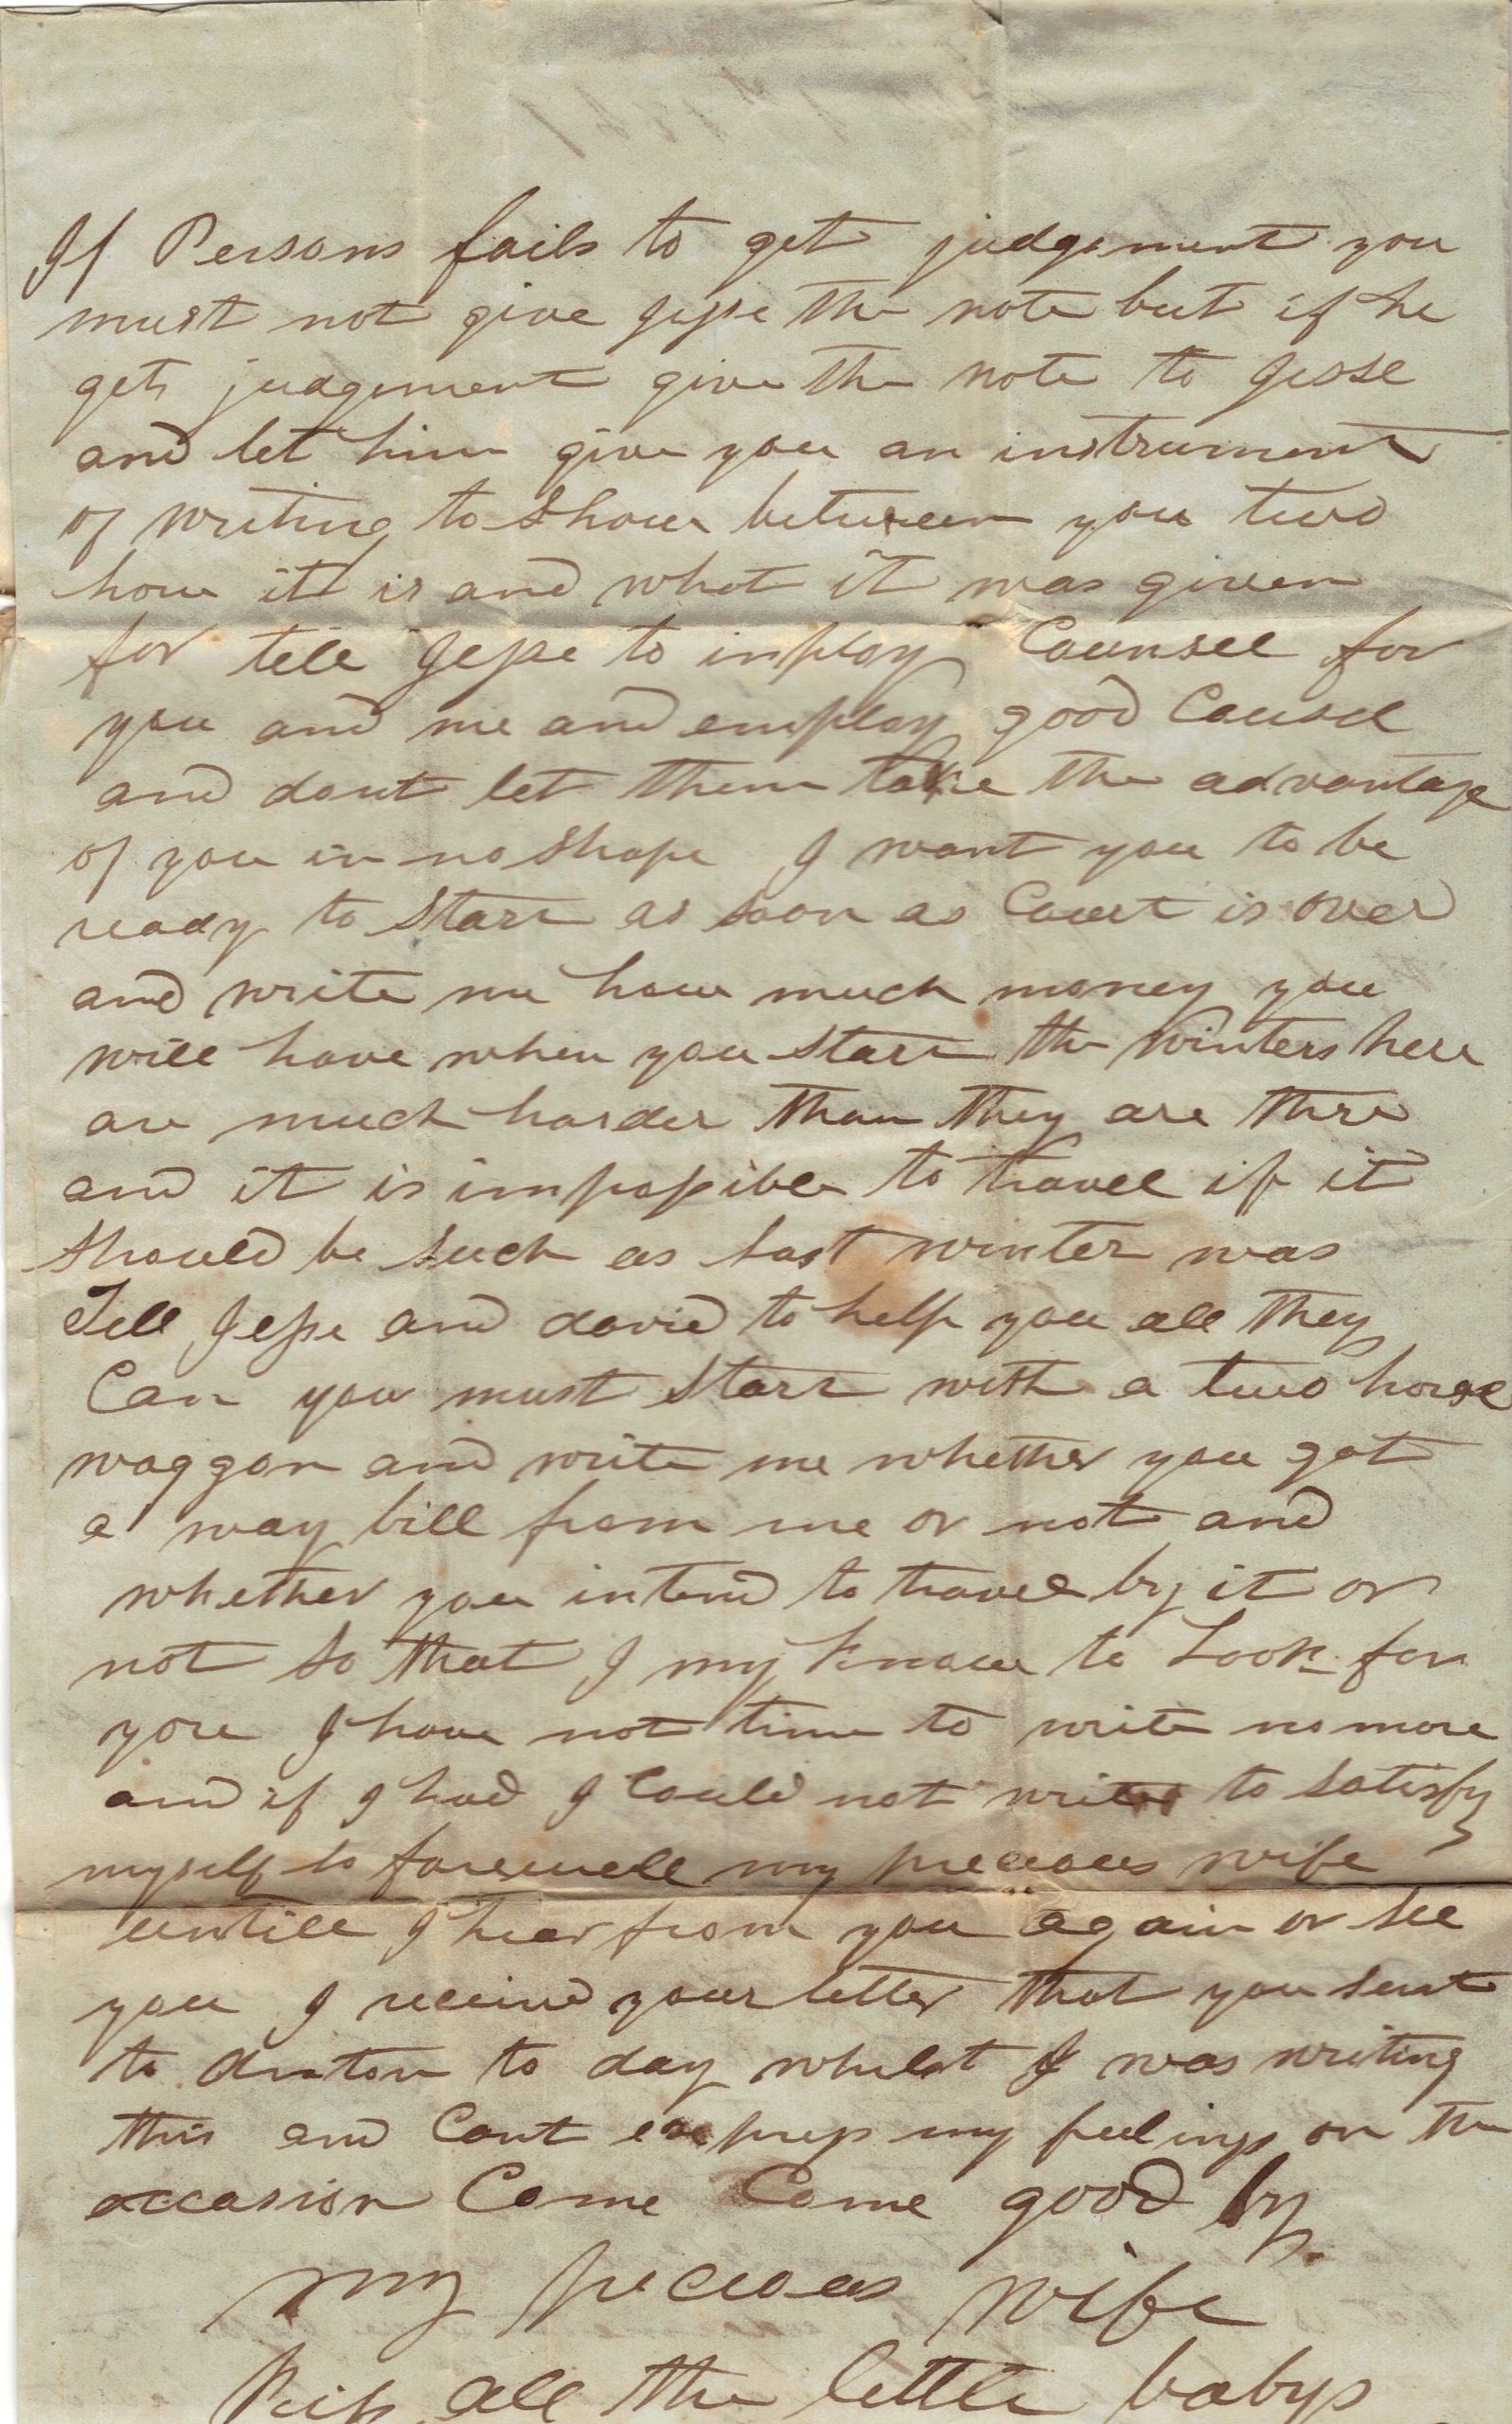 If Persons fails to get judgement you
must not give Jesse the note but if he
gets judgement give the note to Jesse
and let him give you an instrument
of writing to Show between you two
how itt is and what it was given
for tell Jesse to imploy Counsel for
you and me and employ good Cousel
and dont let them take the advantage
of you in no Shape I want you to be
ready to Start as soon as Court is over
and write me how much money you
will have when you Start the Winters here
are much harder than they are thre
and it is impossible to travel if it
Should be Such as last winter was
Tell Jesse and david to help you all they
Can you must Start with a two horse
waggon and write me whether you got
a way bill from me or not and
whether you intend to travel by it or
not So that I my know to Look for
you I have not time to write no more
and if I had I Could not write to Satisfy
myself so farewell my precious wife
untill I hear from you again or See
you I received your letter that you Sent
to to day whilst I was writing
this and Cant express my feelings on the
occasion Come Come good by
my precious wife
Kiss all the little babys